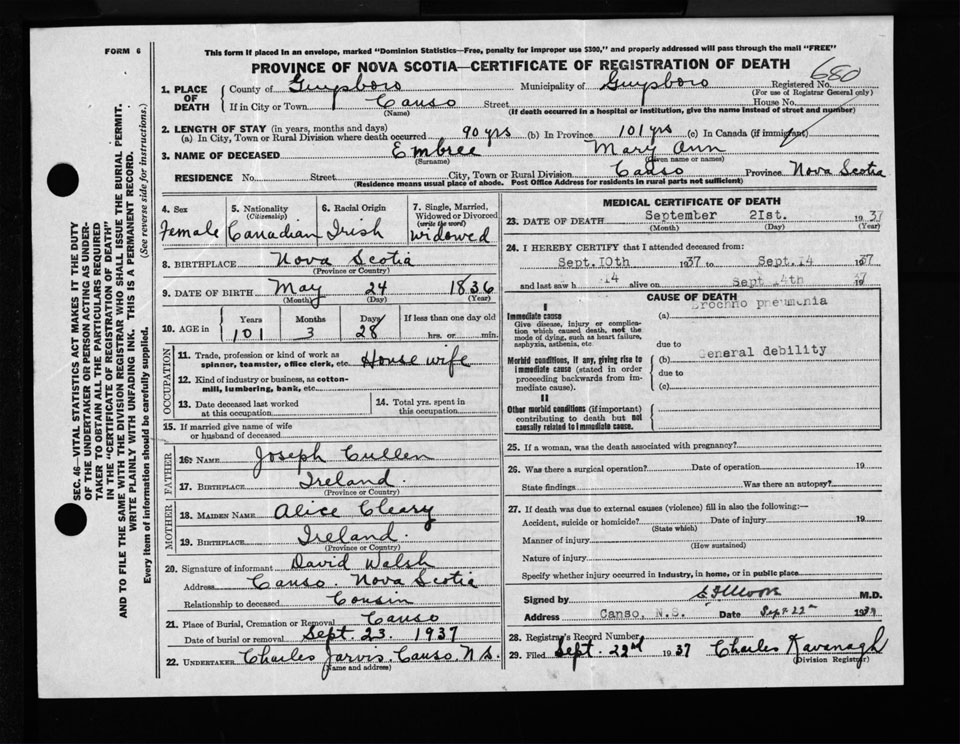 FORM 6
This form if placed in an envelope, marked "Dominion Statistics—Free, penalty for improper use $300," and properly addressed will pass through the mail "FREE"
PROVINCE OF NOVA SCOTIA—CERTIFICATE OF REGISTRATION OF DEATH
680
1. PLACE OF DEATH
County of Guysboro Municipality of Guysboro Registered No.
(For use of Registrar General only)
If in City or Town Canso Street House No.
(Name) (If death occurred in a hospital or institution, give the name instead of street and number)
2. LENGTH OF STAY (in years, months and days)
(a) In City, Town or Rural Division where death occurred 90 yrs (b) In Province 101 yrs (c) In Canada (if immigrant)
3. NAME OF DECEASED Embree Mary Ann
(Surname) (Given name or names)
RESIDENCE No. Street City, Town or Rural Division Canso Province Nova Scotia
(Residence means usual place of abode. Post Office Address for residents in rural parts not sufficient)
4. Sex
Female
5. Nationality
(Citizenship)
Canadian
6. Racial Origin
Irish
7. Single, Married,
Widowed or Divorced
(write the word)
Widowed
8. BIRTHPLACE Nova Scotia
(Province or Country)
9. DATE OF BIRTH May 24 1836
(Month) (Day) (Year)
10. AGE in
Years Months Days If less than one day old
101 3 28 hrs. or min.
OCCUPATION
11. Trade, profession or kind of work as
spinner, teamster, office clerk, etc. House wife
12. Kind of industry or business, as cotton-
mill, lumbering, bank, etc.
13. Date deceased last worked
at this occupation
14. Total yrs. spent in
this occupation
15. If married give name of wife
or husband of deceased
FATHER
16. NAME Joseph Cullen
17. BIRTHPLACE Ireland.
(Province or Country)
MOTHER
18. MAIDEN NAME Alice Cleary
19. BIRTHPLACE Ireland.
(Province or Country)
20. Signature of informant David Walsh
Address Canso. Nova Scotia
Relationship to deceased Cousin
21. Place of Burial, Cremation or Removal Canso
Date of burial or removal Sept. 23. 1937
22. UNDERTAKER Charles Jarvis. Canso. N.S.
(Name and address)
MEDICAL CERTIFICATE OF DEATH
23. DATE OF DEATH September 21st. 1937
(Month) (Day) (Year)
24. I HEREBY CERTIFY that I attended deceased from:
Sept. 10th 1937 to Sept. 14 1937
and last saw h 14 alive on Sept 14th 1937
CAUSE OF DEATH
I
Immediate cause
Give disease, injury or complica-
tion which caused death, not the
mode of dying, such as heart failure,
asphyxia, asthenia, etc.
(a) Brochno pneumonia
due to
Morbid conditions, if any, giving rise to
immediate cause (stated in order
proceeding backwards from im-
mediate cause).
(b) General debility
due to
(c)
II
Other morbid conditions (if important)
contributing to death but not
causally related to immediate cause.
25. If a woman, was the death associated with pregnancy?
26. Was there a surgical operation? Date of operation 19
State findings Was there an autopsy?
27. If death was due to external causes (violence) fill in also the following:—
Accident, suicide or homicide? Date of injury 19
(State which)
Manner of injury
(How sustained)
Nature of injury
Specify whether injury occurred in industry, in home, or in public place
Signed by M.D.
Address Canso, N.S. Date Sept. 22nd 1937
28. Registrar's Record Number
29. Filed Sept. 22nd 1937 Charles Kavanagh
(Division Registrar)
SEC. 46—VITAL STATISTICS ACT MAKES IT THE DUTY
OF THE UNDERTAKER OR PERSON ACTING AS UNDER-
TAKER TO OBTAIN ALL THE PARTICULARS REQUIRED
IN THE "CERTIFICATE OF REGISTRATION OF DEATH"
AND TO FILE THE SAME WITH THE DIVISION REGISTRAR WHO SHALL ISSUE THE BURIAL PERMIT.
WRITE PLAINLY WITH UNFADING INK. THIS IS A PERMANENT RECORD.
Every item of information should be carefully supplied. (See reverse side for instructions.)